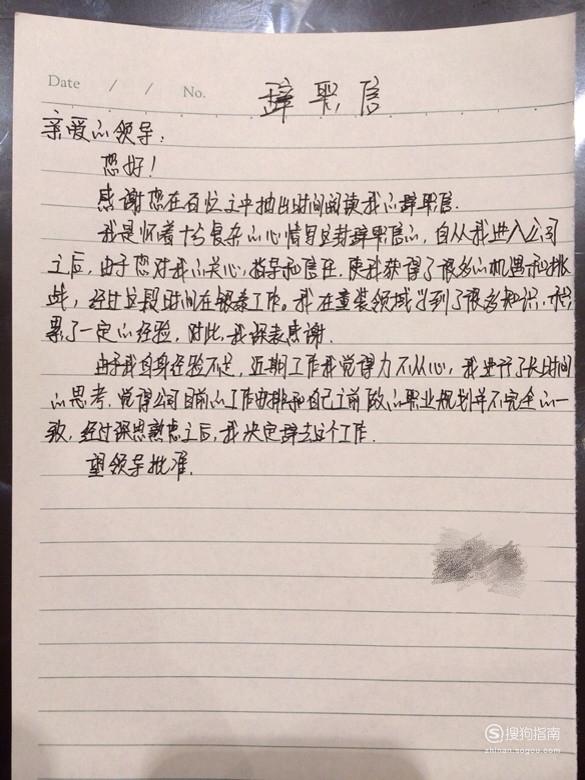 Date / / No.
辞职信
亲爱的领导:
您好!
感谢您在百忙之中抽出时间阅读我的辞职信.
我是怀着十分复杂的心情写这封辞职信的,自从我进入公司
之后,由于您对我的关心,指导和信任,使我获得了很多的机遇和挑
战,经过这段时间在银泰工作。我在童装领域学到了很多知识,积
累了一定的经验,对此,我深表感谢.
由于我自身经验不足,近期工作我觉得力不从心,我进行了长时间
的思考,觉得公司目前的工作安排和自己之前做的职业规划并不完全的一
致,经过深思熟虑之后,我决定辞去这个工作.
望领导批准.
搜狗指南
zhinan.sogou.com